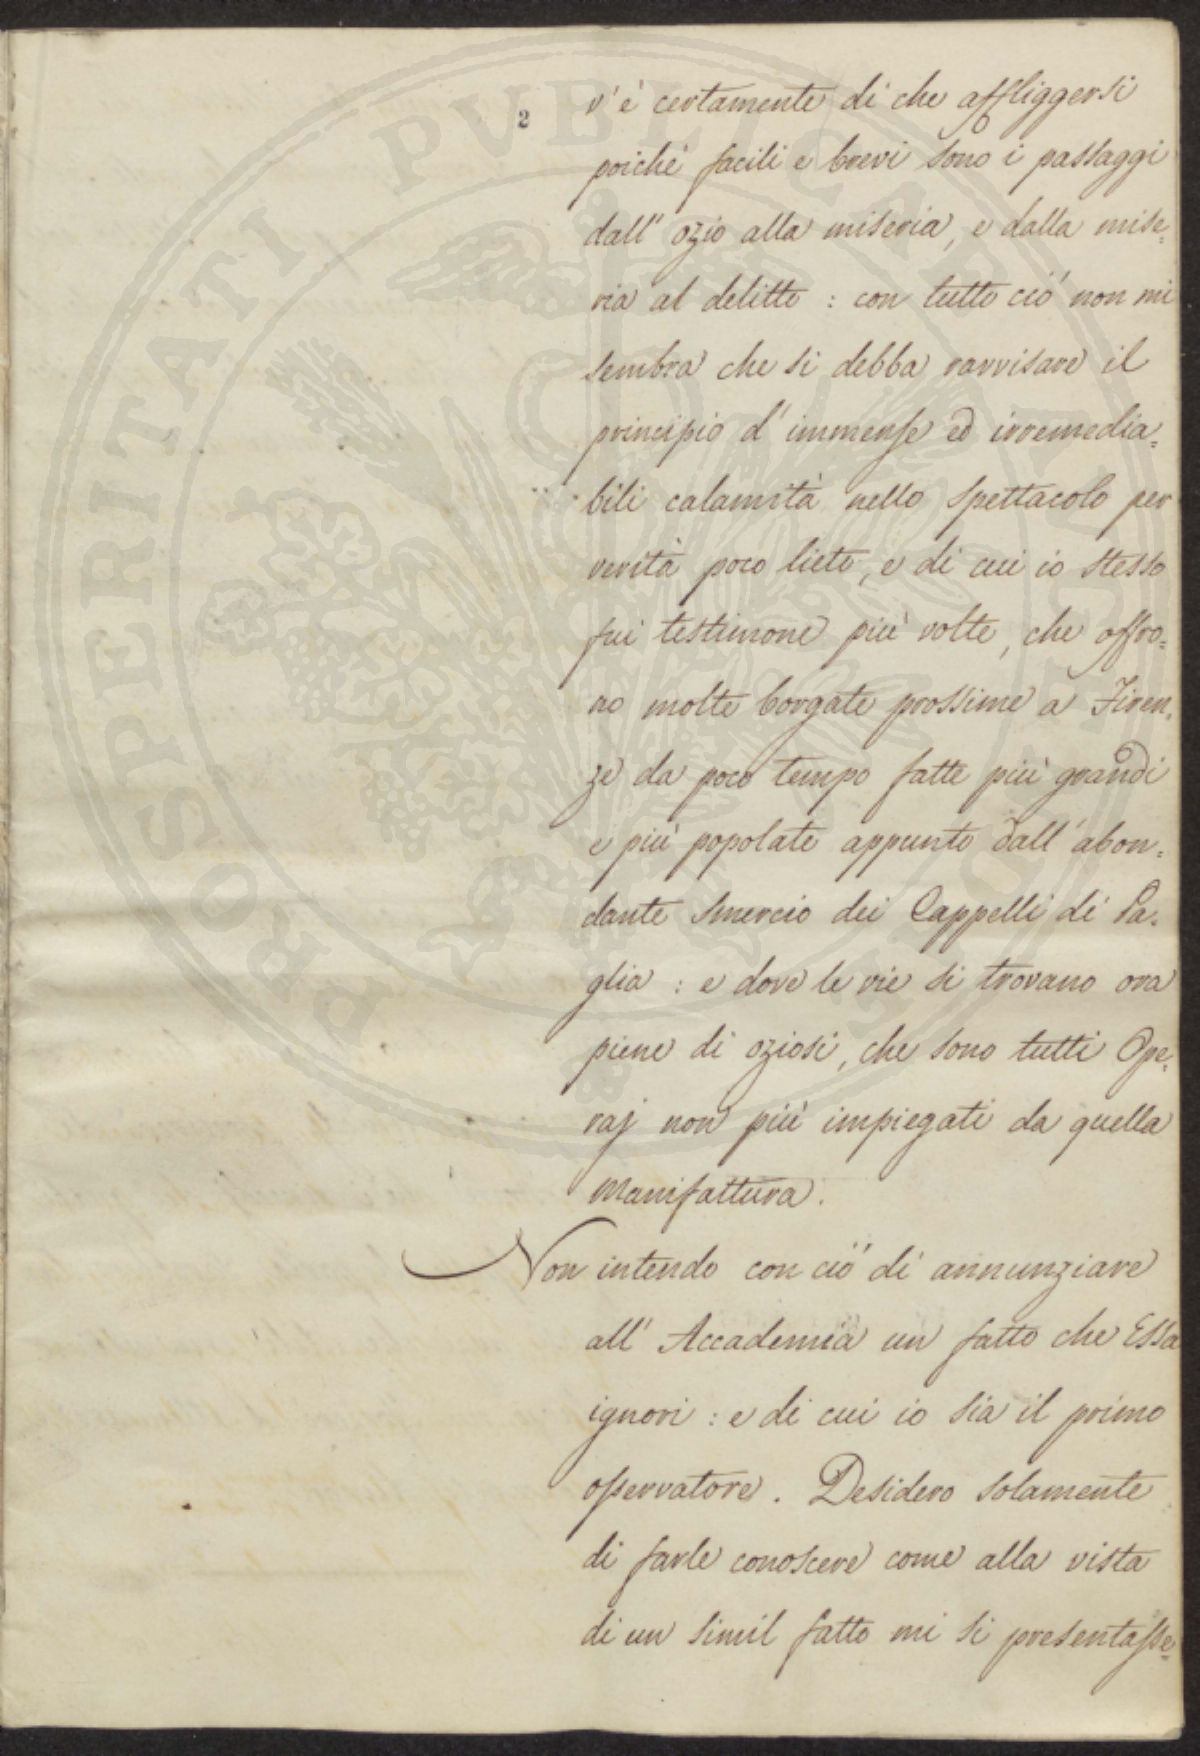 2
v'è certamente di che affliggersi
poichè facili e brevi sono i passaggi
dall' ozio alla miseria, e dalla mise=
ria al delitto : con tutto ciò non mi
sembra che si debba ravvisare il
principio d' immense ed irremedia=
bili calamità nello spettacolo per
verità poco lieto, e di cui io stesso
fui testimone più volte, che offro=
no molte borgate prossime a Firen=
ze da poco tempo fatte più grandi
e più popolate appunto dall' abon=
dante smercio dei Cappelli di Pa=
glia : e dove le vie si trovano ora
piene di oziosi, che sono tutti Ope=
raj non più impiegati da quella
manifattura.
Non intendo con ciò di annunziare
all' Accademia un fatto che Essa
ignori : e di cui io sia il primo
osservatore. Desidero solamente
di farle conoscere come alla vista
di un simil fatto mi si presentasse=
PROSPERITATI PUBLICAE